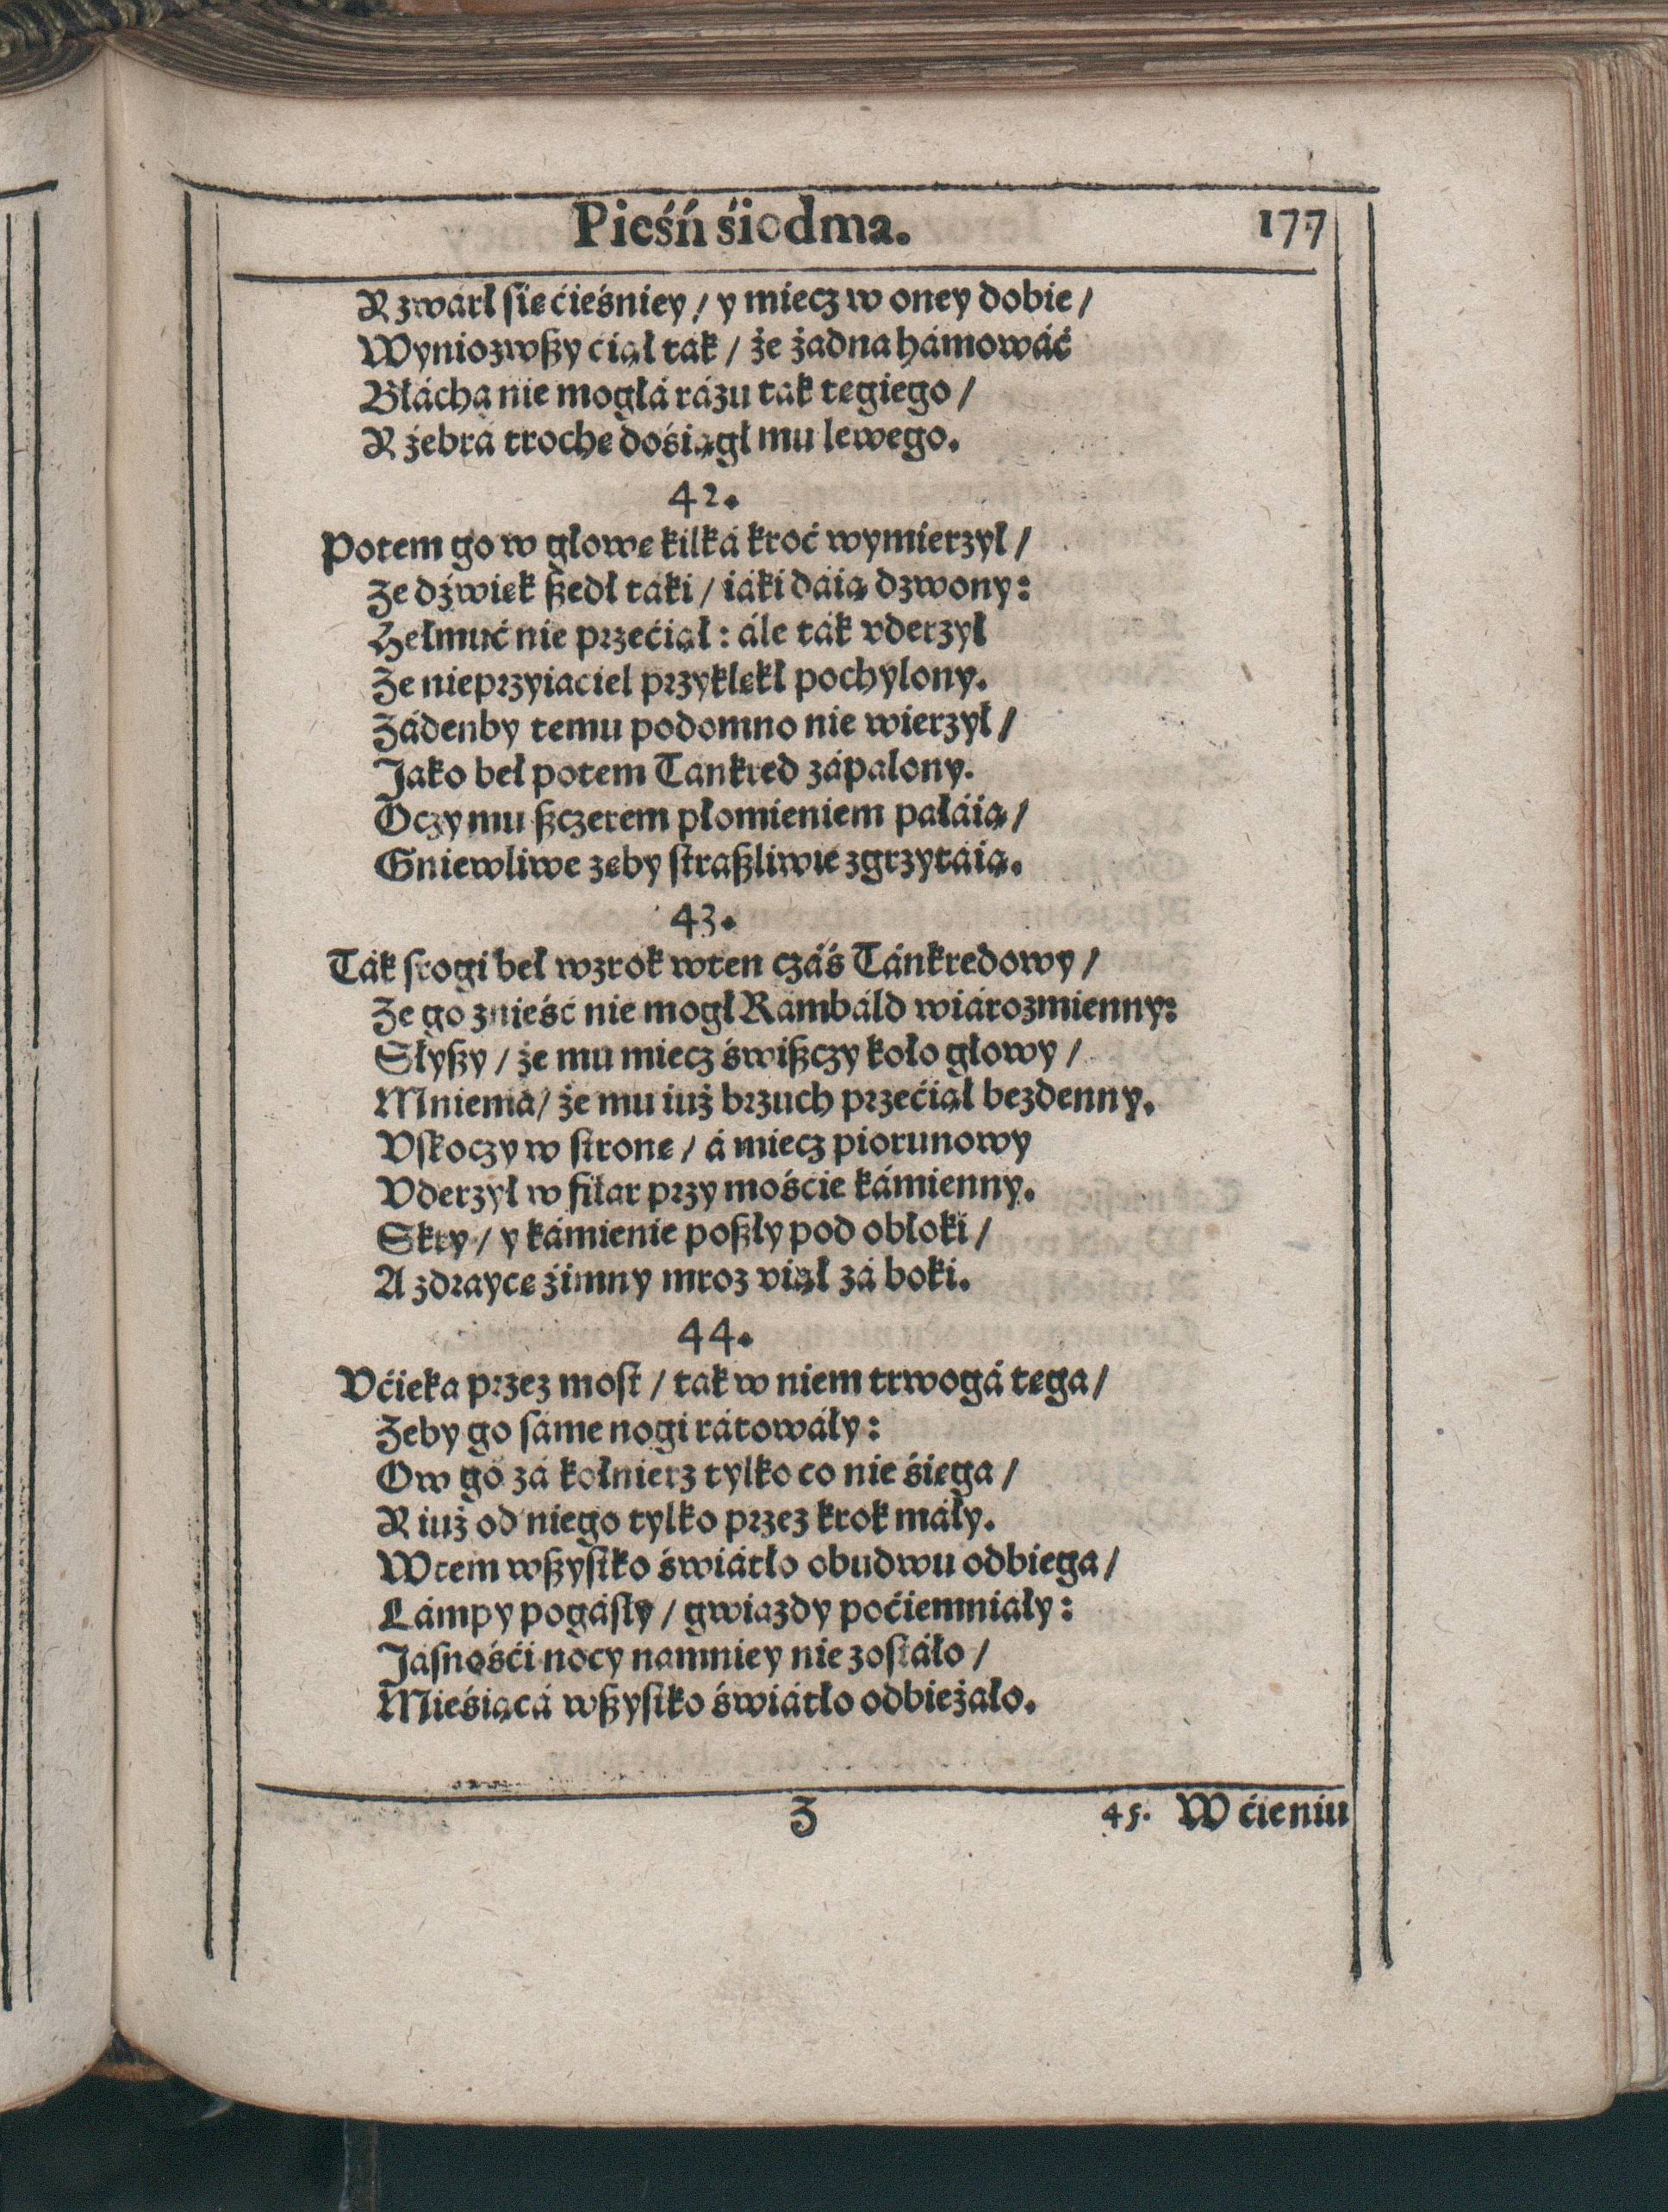 Pieśń śiodma. 177
Y zwárł sie ćieśniey / y miecz w oney dobie /
Wyniozwßy ciął tak / że żadna hámowáć
Bláchą nie mogłá rázu tak tęgiego /
Y żebrá trochę dośiągł mu lewego.
42.
Potem go w głowę kilká kroć wymierzył /
Ze dźwięk ßedł táki / iáki dáią dzwony:
Hełmuć nie przećiął : ále ták vderzył
Ze nieprzyiaciel przyklękł pochylony.
Zádenby temu podomno nie wierzył /
Jako beł potem Tankred zápalony.
Oczy mu ßczerem płomieniem pałáią /
Gniewliwe zęby ſtraßliwie zgrzytáią.
43.
Ták ſrogi beł wzrok wten czáś Tánkredowy /
Ze go znieść nie mogł Rámbáld wiározmienny:
Słyßy / że mu miecz świßczy koło głowy /
Mniema / że mu iuż brzuch przećiął bezdenny.
Vſkoczy w ſtronę / á miecz piorunowy
Vderzył w filar przy mośćie kámienny.
Skry / y kámienie poßły pod obłoki /
A zdrayce źimny mroz viął zá boki.
44.
Vćieka przez moſt / tak w niem trwogá tęga /
Zeby go sáme nogi rátowáły:
Ow go zá kołnierz tylko co nie śięga /
Y iuż od niego tylko przez krok máły.
Wtem wßyſtko świátło obudwu odbiega /
Lámpy pogásły / gwiazdy poćiemniáły:
Jaſnośći nocy namniey nie zoſtáło /
Mieśiącá wßyſtko świátło odbieżało.
Z 45. W ćieniu